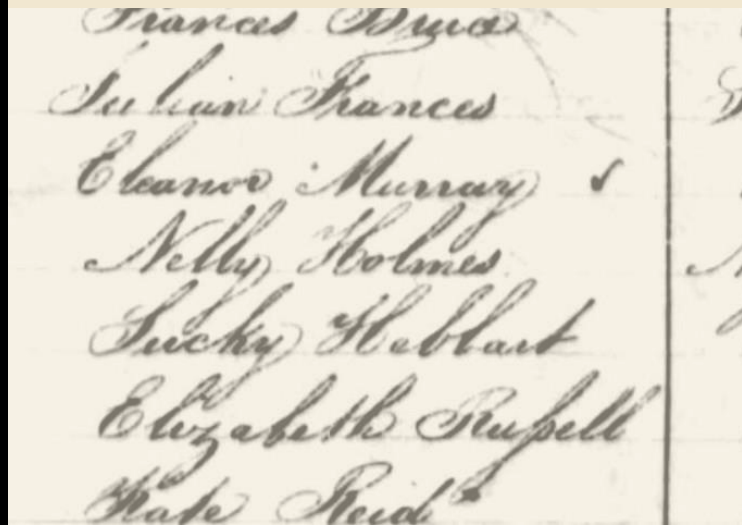 Frances Bruce
Julian Frances
Eleanor Murray ✓
Nelly Holmes
Sucky Hebbart
Elizabeth Russell
Kate Reid